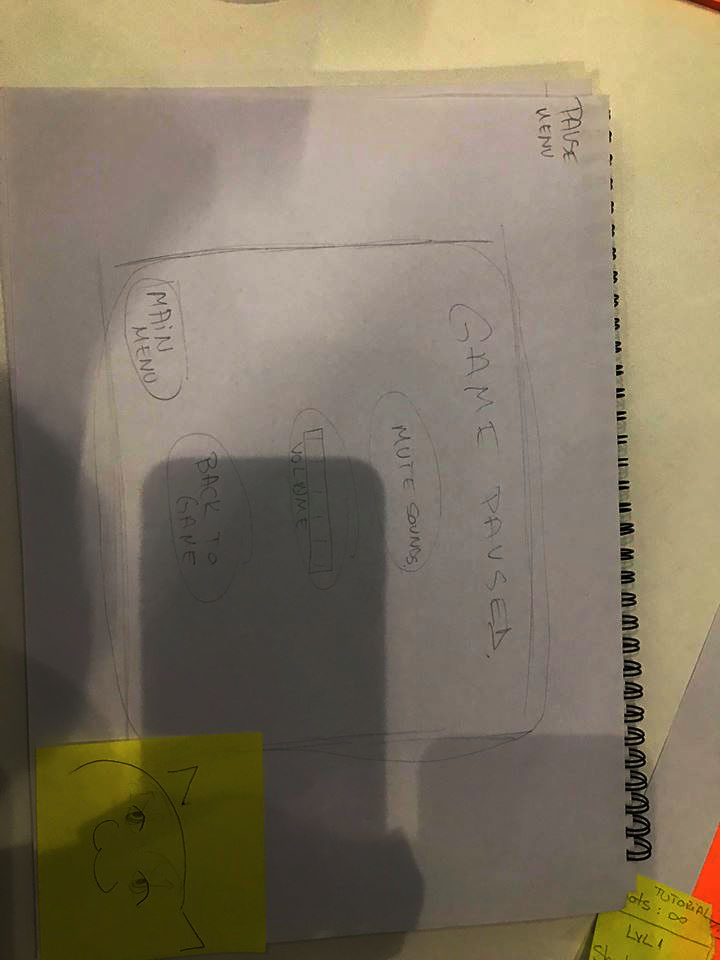 PAUSE
MENU
GAME PAUSED.
MUTE SOUNDS
VOLUME
BACK TO
GAME
MAIN
MENU
TUTORIAL
ots: ∞
LVL 1